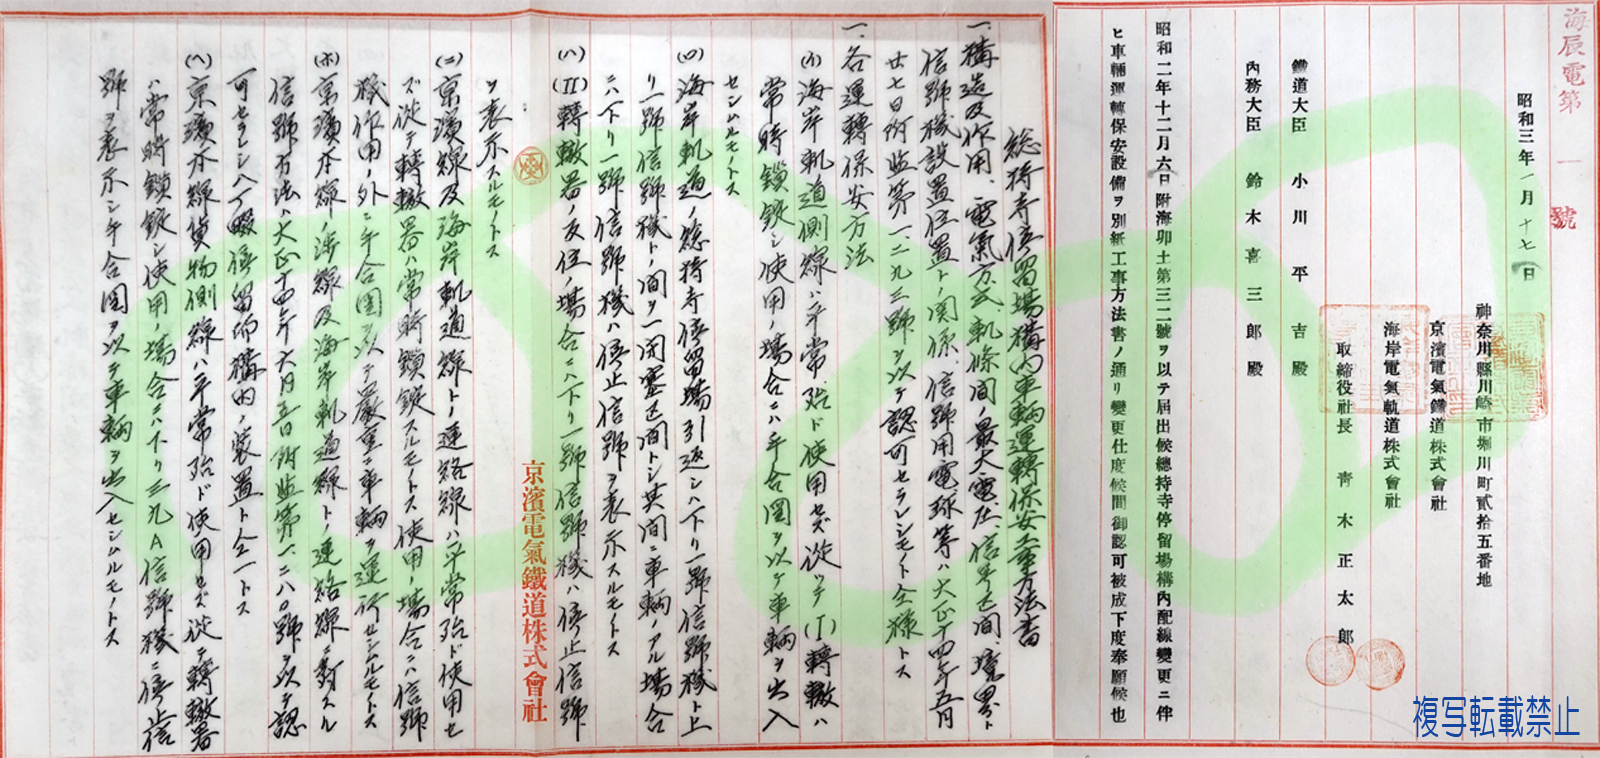 海辰電第一號
昭和三年一月十七日
神奈川縣川崎市堀川町貳拾五番地
京濱電氣鐵道株式會社
海岸電氣軌道株式會社
取締役社長 靑木正太郎
鐵道大臣 小川平吉殿
內務大臣 鈴木喜三郎殿
昭和二年十二月六日附海卯土第三二號ヲ以テ届出候總持寺停留場構內配線變更ニ伴
ヒ車輛運轉保安設備ヲ別紙工事方法書ノ通リ變更仕度候間御認可被成下度奉願候也
総持寺停留場構内車輌運轉保安工事方法書
一、構造及作用、電氣方式、軌條間ノ最大電圧、信号区間ノ境界ト
信號機設置位置トノ関係、信號用電球等ハ大正十四年五月
廿七日附監第一、二九三號ヲ以テ認可セラレシモノト仝様トス
一、各運轉保安方法
(イ)海岸軌道側線ハ平常殆ド使用セズ從ッテ(I)轉轍ハ
常時鎖錠シ使用ノ場合ニハ手合圖ヲ以テ車輌ヲ出入
センムルモノトス
(ロ)海岸軌道ノ総持寺停留場引返シハ下リ一號信號機ト上
リ一號信號機トノ間ヲ一閉塞区間トシ其間ニ車輌ノアル場合
ニハ下リ一號信號機ハ停止信號ヲ表示スルモノトス
(ハ)(II)轉轍器ノ反位ノ場合ニハ下リ一號信號機ハ停止信號
ヲ表示スルモノトス
(ニ)京濱線及海岸軌道線トノ連絡線ハ平常殆ド使用セ
ズ從テ轉轍器ハ常時鎖錠スルモノトス使用ノ場合ニハ信號
機作用ノ外ニ手合圖ヲ以テ嚴重ニ車輌ヲ運行センムルモノトス
(ホ)京濱本線ノ渉線及海岸軌道線トノ連絡線ニ對スル
信號方法ハ大正十四年六月五日附監第一、二八〇號ヲ以テ認
可セラレシ八丁畷停留所構内ノ装置ト仝一トス
(ヘ)京濱本線貨物側線ハ平常殆ド使用セズ從テ轉轍器
ハ常時鎖錠シ使用ノ場合ニハ下リ三九A信號機ニ停止信
號ヲ表示シ手合圖ヲ以テ車輌ヲ出入センムルモノトス
京濱電氣鐵道株式會社
複写転載禁止